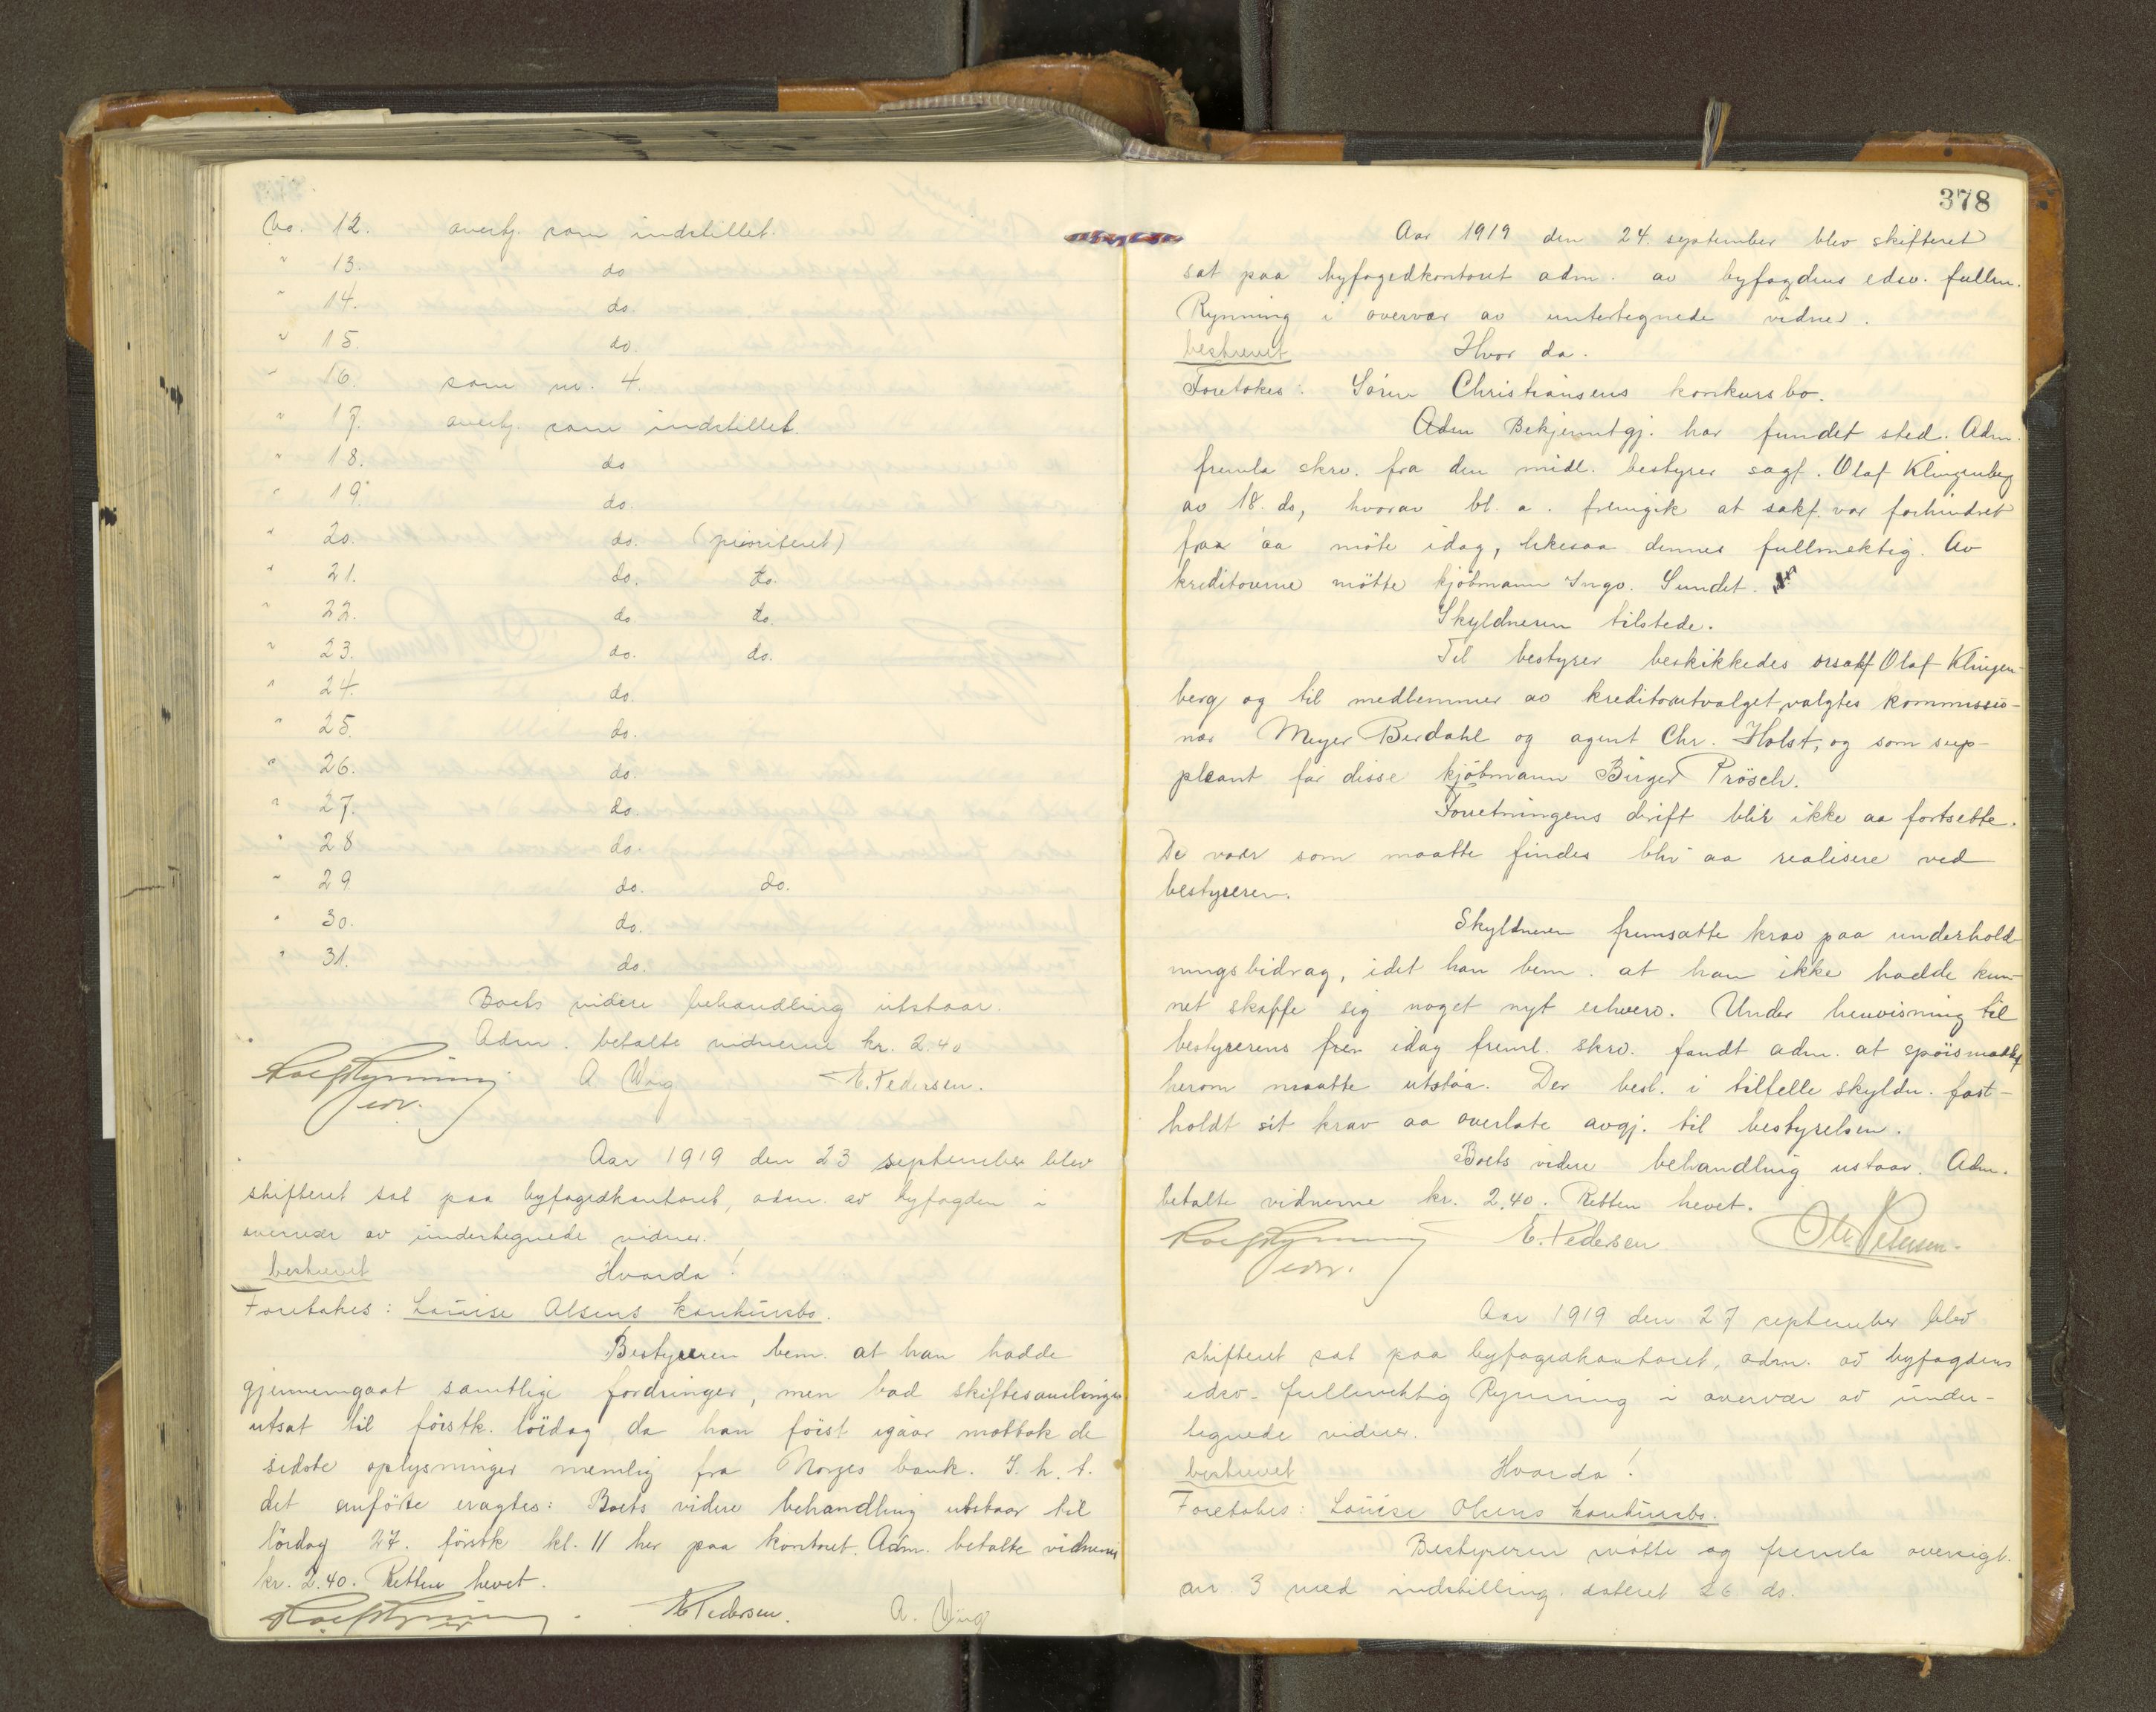 No. 12. avertg. som indstillet.
" 13. do
" 14. do.
" 15. do.
" 16. som nr. 4.
" 17. avertg. som indstillet.
" 18. do
" 19. do.
" 20. do. (prioriteret)
" 21. do. do.
" 22. do. do.
" 23. do. do.
" 24. do.
" 25. do.
" 26. do.
" 27. do.
" 28 do.
" 29. do. do.
" 30. do.
" 31. do.
Boets videre behandling utstaar.
Adm. betalte vidnerne kr. 2.40
Rolf Rynning A Wiig E. Pedersen.
edsv.
Aar 1919 den 23 september blev
skifteret sat paa byfogedkontoret, adm. av byfogden i
overvær av undertegnede vidner.
beskrevet Hvorda!
Foretokes: Louise Olsens konkursbo.
Bestyreren bem. at han hadde
gjennemgaat samtlige fordringer, men bad skiftesamlingen
utsat til förstk. lördag da han först igaar mottok de
sidste oplysninger nemlig fra Norges bank. I. h. t.
det anförte eragtes: Boets videre behandling utstaar til
lördag 27. förstk kl. 11 her paa kontoret. Adm. betalte vidnerne
kr. 2.40. Retten hevet.
Rolf Rynning E Pedersen. A. Wiig
378
Aar 1919 den 24. september blev skifteret
sat paa byfogedkontoret adm. av byfogdens edsv. fullm.
Rynning i overvær av undertegnede vidner.
beskrevet Hvor da.
Foretokes: Sören Christiansens konkursbo.
Adm Bekjenntgj. har fundet sted. Adm.
fremla skrv. fra den midl. bestyrer sagf. Olaf Klingenberg
av 18. ds, hvorav bl. a. fremgik at sakf. var forhindret
fraa aa möte idag, likesaa dennes fullmektig. Av
kreditorerne mötte kjöbmann Ingv. Sundet.
Skyldneren tilstede.
Til bestyrer beskikkedes orsakf Olaf Klingen-
berg og til medlemmer av kreditorutvalget valgtes kommissio-
nær Meyer Berdahl og agent Chr. Holst, og som sup-
pleant för disse kjöbmann Birger Prösch.
Forretningens drift blir ikke aa fortsette.
De varer som maatte findes blir aa realisere ved
bestyreren.
Skyldneren fremsatte krav paa underhold
ningsbidrag, idet han bem. at han ikke hadde kun-
net skaffe sig noget nyt erhverv. Under henvisning til
bestyrerens frem idag freml. skrv. fandt adm. at spörsmaalet
herom maatte utstaa. Der besl. i tilfelle skyldn. fast-
holdt sit krav aa overlate avgj. til bestyrelsen.
Boets videre behandling ustaar. Adm.
betalte vidnerne kr. 2.40. Retten hevet.
Rolf Rynning E. Pedersen Ole Petersen.
edsv.
Aar 1919 den 27 september blev
skifteret sat paa byfogedkontoret, adm. av byfogdens
edsv. fullmektig Rynning i overvær av under-
tegnede vidner.
beskrevet Hvorda!
Foretokes: Louise Olsens konkursbo.
Bestyreren mötte og fremla oversigt.
nr 3 med indstilling dateret 26 ds.